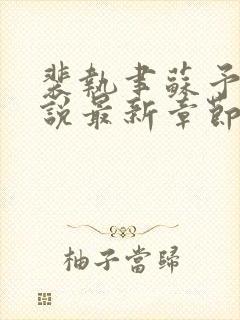 裴執聿蘇予
說最新章節
柚子當歸